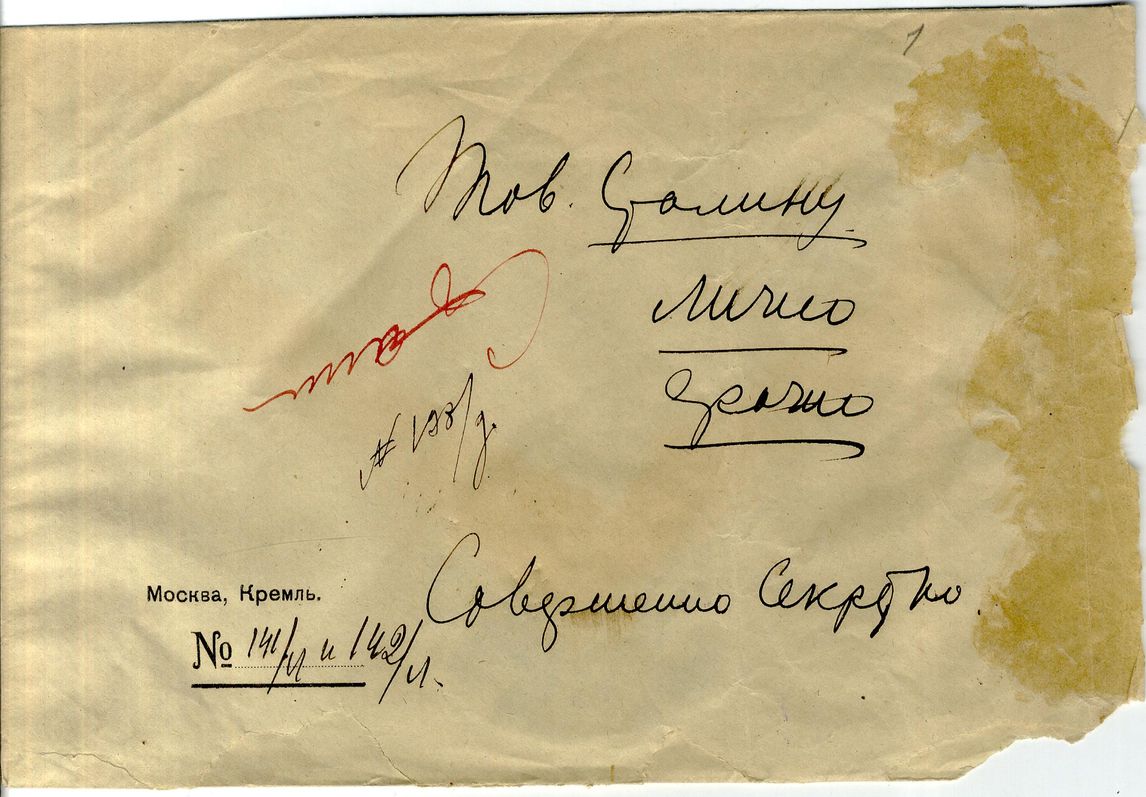 1
Тов. Сталину
лично
срочно
№ 138/д.
Совершенно Секретно.
Москва, Кремль.
№ 141/л и 142/л.